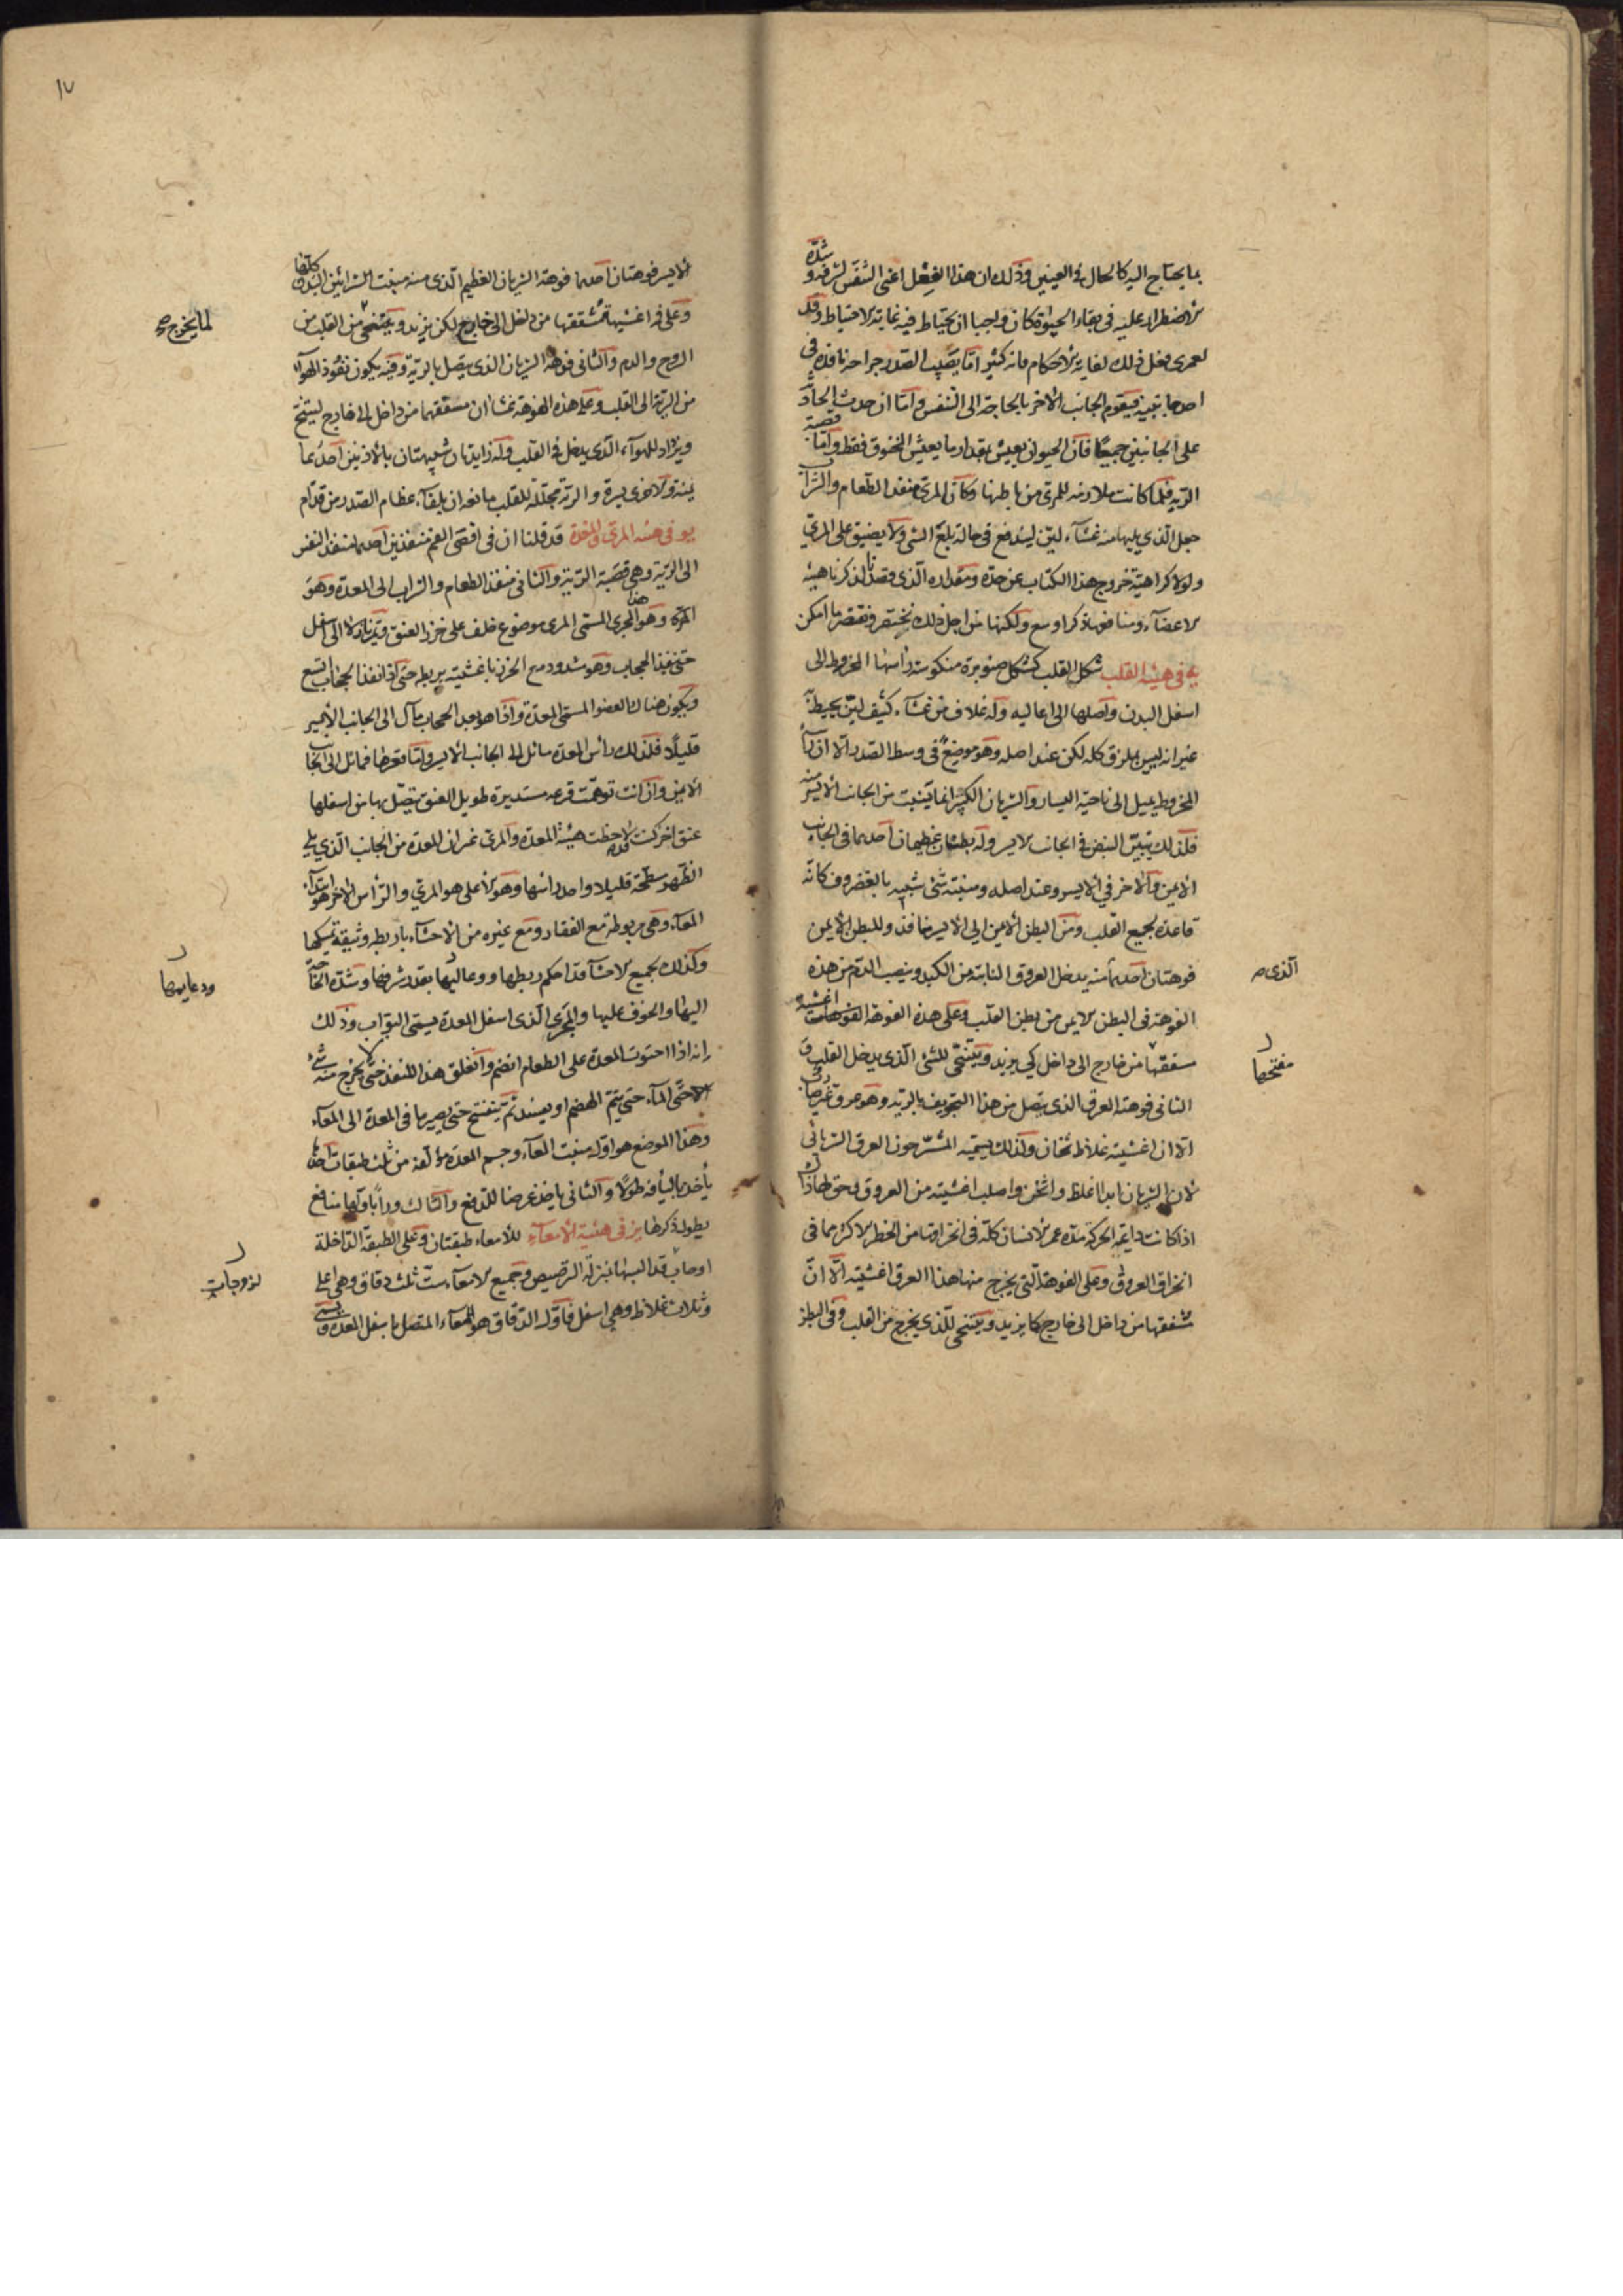 بما يحتاج اليه كالحال في العينين وذلك ان هذا الفعل اعنى التنفس لشرفه وشدة
الاضطرار عليه فى بقاء الحيوة كان واجبا ان يحتاط فيه غاية الاحتياط وقد
لعمرى فعل ذلك لغاية الاحكام فانه كثيرا ما يصيب الصدر جراحة نافذة فى
احد جانبيه فيقوم الجانب الاخر بالحاجة الى التنفس واما ان حدث الحادث
على الجانبين جميعًا فان الحيوان يعيش بمقدار ما يعيش المخنوق فقط واما قصبة
الرية فلما كانت ملازمه للمرى من باطنها وكان المرى منفذ الطعام والشراب
جعل الذي يليها منه غشاء لين ليندفع فى حالة بلع الشى ولا يضيق على المري
ولولا كراهية خروج هذا الكتاب عن حده ومقداره الذى قصدنا لذكرنا هيئه
الاعضآء ومنافعها ذكرا اوسع ولكنها من اجل ذلك نختصر ونقتصر ما امكن
يه فى هيئة القلب شكل القلب كشكل صنوبرة منكوسة رأسها المخروط الى
اسفل البدن واصلها الى اعاليه وله غلاف من غشآء كثيف لين يحيط به
غير انه ليس بملزق كله لكن عند اصله وهو موضوع فى وسط الصدر الا ان رأسه
المخروط يميل الى ناحية اليسار والشريان الكبير انما ينبت من الجانب الايسر منه
فلذلك يتبين النبض فى الجانب الايسر وله بطنان عظيمان احدهما فى الجانب
الايمن والاخر فى الايسر وعند اصله ومنبته شئ شبيه بالغضروف كانه
قاعدة لجميع القلب ومن البطن الايمن الى الايسر منافذ وللبطن الايمن
فوهتان احدهما منه يدخل العروق النابتة من الكبد وينصب الدم من هذه
الذى ص
الفوهة فى البطن الايمن من بطن القلب وعلى هذه الفوهة اغشية
مسقفها من خارج الى داخل كي يزيد ويتنحى للشئ الذى يدخل القلب و
مفتحها
الثانى فوهة العرق الذى يتصل من هذا التجويف بالرية وهو عرق غير ضارب
الا ان اغشيته غلاظ ثخان ولذلك يسميه المشرحون العرق الشريانى
لان الشريان ابدا اغلظ واثخن واصلب اغشيته من العروق بحق لهذا
اذ كانت دايمة الحركة مدة عمر الانسان كله فى انخراقها من الخطر الاكثر مما فى
انخراق العروق وعلى الفوهة التى يخرج منها هذا العرق اغشيته الا ان
مشقفها من داخل الى خارج كما يزيد ويتنحى للذى يخرج من القلب وفى البطن
١٧
الايسر فوهتان احدهما فوهة الشريان العظيم الذى منه منبت الشرائين التى فى البدن كلها
وعلى فم اغشيتها مشققها من داخل الى خارج لكن يزيد ويتنحى من القلب من
لما يخرج صح
الروح والدم والثانى فوهة الشريان الذى يتصل بالرية وفيه يكون نفوذ الهوآء
من الرية الى القلب وعلى هذه الفوهة غشاان مسققهما من داخل الى خارج ليتفتح
ويزاد للهوآء الذى يدخل فى القلب وله زايدتان شبيهتان بالاذنين احدهما
يمنة والاخرى يسرة والرية مجللة للقلب مانعه ان يلقآء عظام الصدر من قدام
يو فى هيئه المرى والمعدة قد قلنا ان فى اقصى الفم منفذين احدهما منفذ النفس
الى الرية وهى قصبة الرية والثانى منفذ الطعام والشراب الى المعدة وهو
المرى وهذا المجرى المسمى المرى موضوع خلف على خرز العنق ويمر نازلا الى اسفل
حتى ينفذ الحجاب وهو مشدود مع الخرز باغشيته يربطه حتى اذا نفذ الحجاب اتسع
ويكون هناك العضو المسمى المعدة واذا هو بعد الحجاب مآل الى الجانب الايسر
قليلًا فلذلك رأس المعدة مائل الى الجانب الايسر واما قعرها فمائل الى الجانب
الايمن وان انت توهمت قرعه مستديرة طويل العنق يتصل بها من اسفلها
عنق اخر كنت قد لاحظت هيئة المعدة والمرى غير ان المعدة من الجانب الذي يلي
الظهر مسطحة قليلا واحد راسها وهو الاعلى هو المري والرأس الاخر هو ابتدآء
المعآء وهى مربوطة مع الفقار ومع غيره من الاحشآء باربطه وثيقة تمسكها
وكذلك جميع الاحشآ قد احكم ربطها ووعاليها بقدر شرفها وشدة الحاجة
ودعايمها
اليها والخوف عليها والمجرى الذى اسفل المعدة يسمى البواب وذلك
انه اذا احتوت المعدة على الطعام انضم وانغلق هذا المنفذ حتى لا يخرج منه شئ
الا حتى المآء حتى يتم الهضم او يفسد ثم يتفتح حتى يصير ما فى المعدة الى المعآء
وهذا الموضع هو اول منبت المعآء وجسم المعدة مؤلفة من ثلث طبقات احدها
يأخذ باليافه طولًا والثانى ياخذ عرضا للدفع والثالث ورابا ولها منافع
يطول ذكرها يز فى هيئة الامعآء للامعاء طبقتان وعلى الطبقة الداخلة
لزوجات
اوصاب قد البستها بمنزلة الترصيص وجميع الامعآء ست ثلث دقاق وهى اعلى
وثلاث غلاظ وهي اسفل فاول الدقاق هو المعآء المتصل باسفل المعدة ويسمى